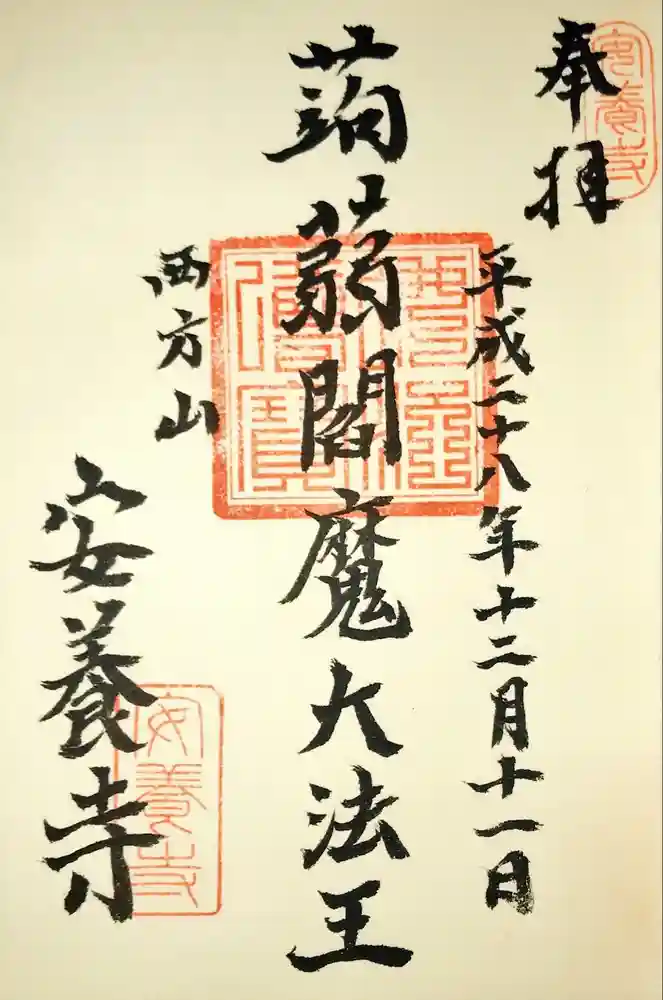 奉拝
安養寺
平成二十八年十二月十一日
蒟蒻閻魔大法王
西方山
安養寺
安養寺